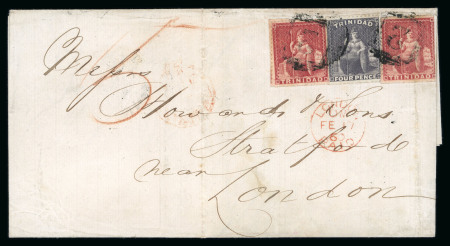 TRINIDAD
TRINIDAD
FOUR PENCE
TRINIDAD
Messrs
Howards & Sons.
Stratford
near
London
FE
PAID